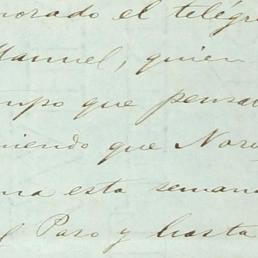 norado el telégr
Manuel, quien
mpo que pensa
niendo que Nor
ma esta seman
el Paso y hasta